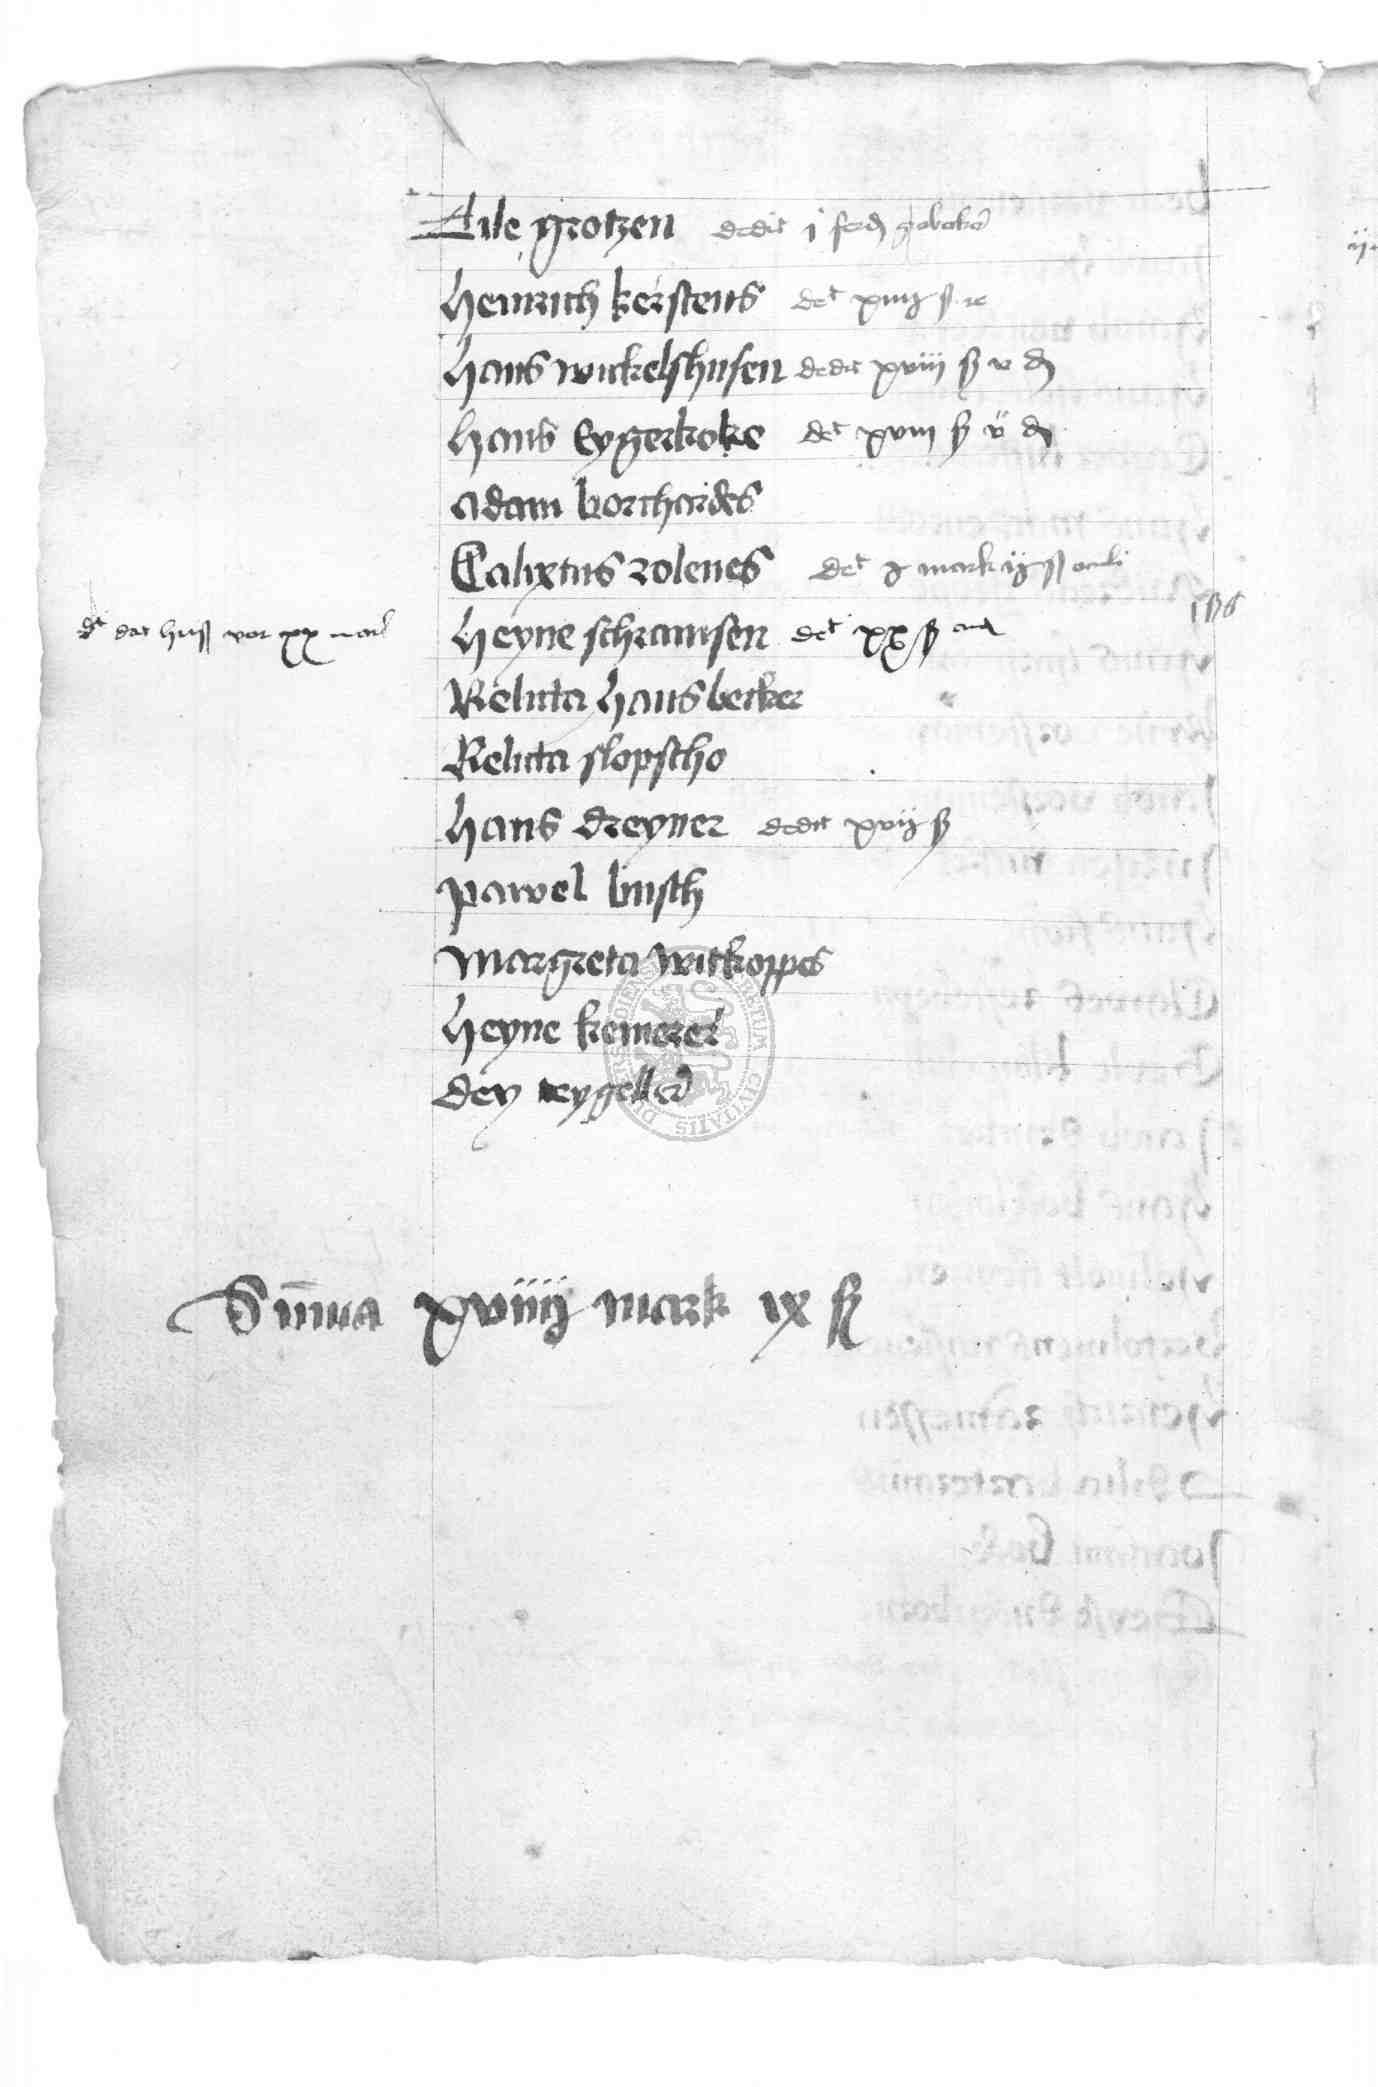 Tile grotzen dedit j ferd
Heinrich kerstens det xiiij ß
Hans wickelshusen dedit xviij ß v d
hans Eygerkoke det xviij ß v d
adam borchardes
Calixtus rolenes det j mark iij ß oculi
dt dat huß vor xx mark Heyne schramsen det xx ß
Relicta Hans becker
Relicta slopscho
Hans dreyner dedit xvij ß
pawel busch
Margreta witkoppes
Heyne kemerer
dey teygeller
Summa xviiij mark ix ß